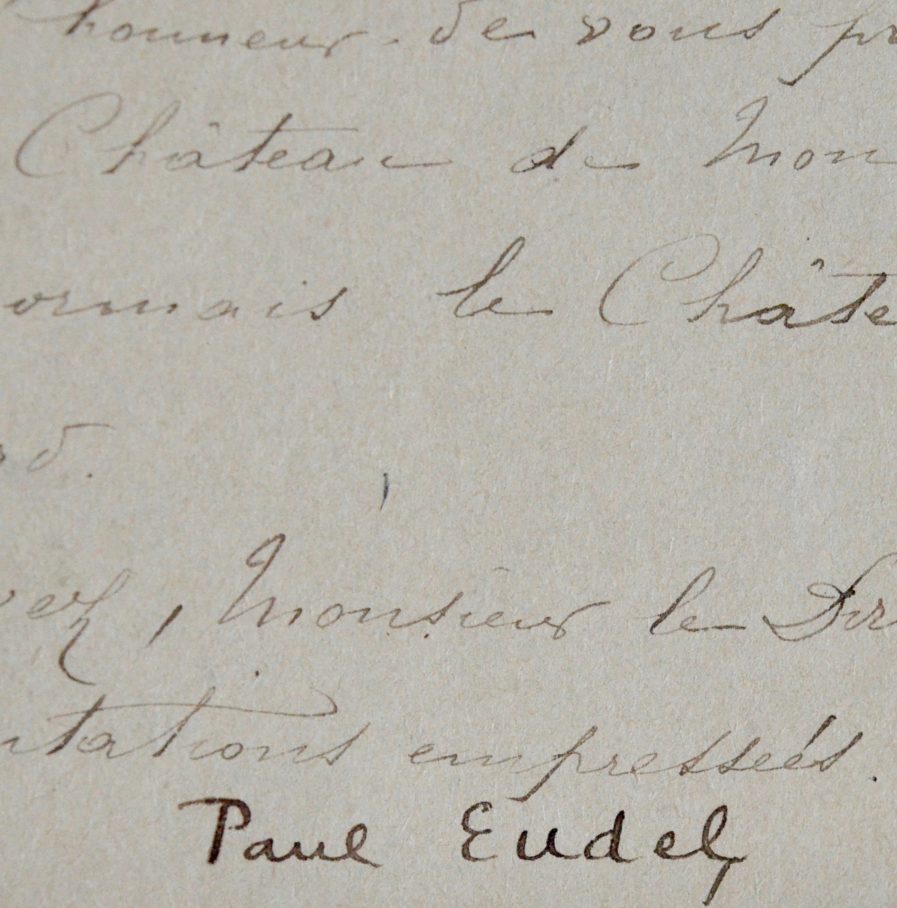 honneur de vous pr
Château de Mon
ormais le Châte
od.
vez, Monsieur le Dir
utations empressées.
Paul Eudel